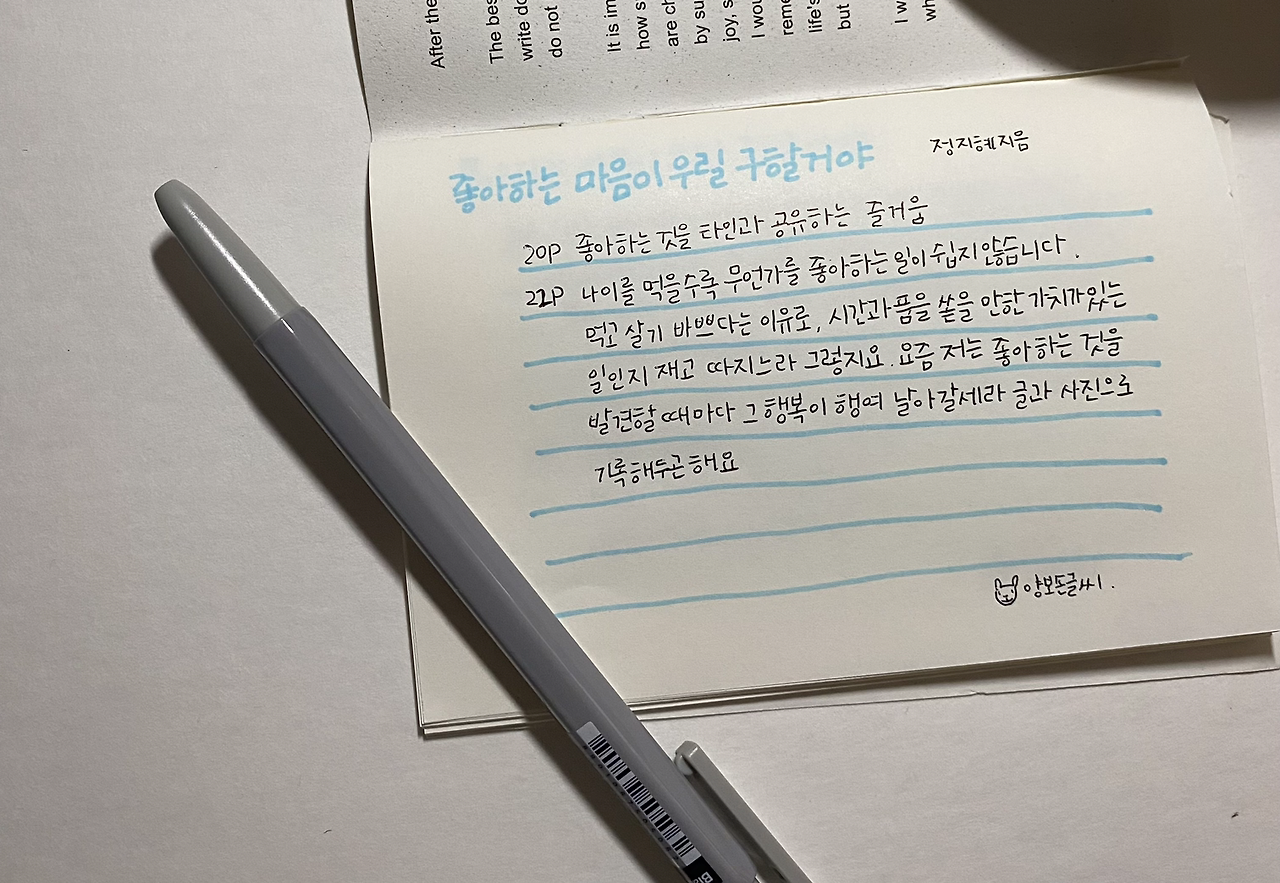 After the
The bes
write do
do not
It is im
how s
are ch
by su
joy, s
I wou
reme
life's
but
I w
wh
좋아하는 마음이 우릴 구할거야
정지혜지음
20P 좋아하는 것을 타인과 공유하는 즐거움
22P 나이를 먹을수록 무언가를 좋아하는 일이 쉽지않습니다.
먹고 살기 바쁘다는 이유로, 시간과 품을 쏟을 만한 가치가 있는
일인지 재고 따지느라 그렇지요. 요즘 저는 좋아하는 것을
발견할 때마다 그 행복이 행여 날아갈세라 글과 사진으로
기록해두곤 해요
양보돈글씨.